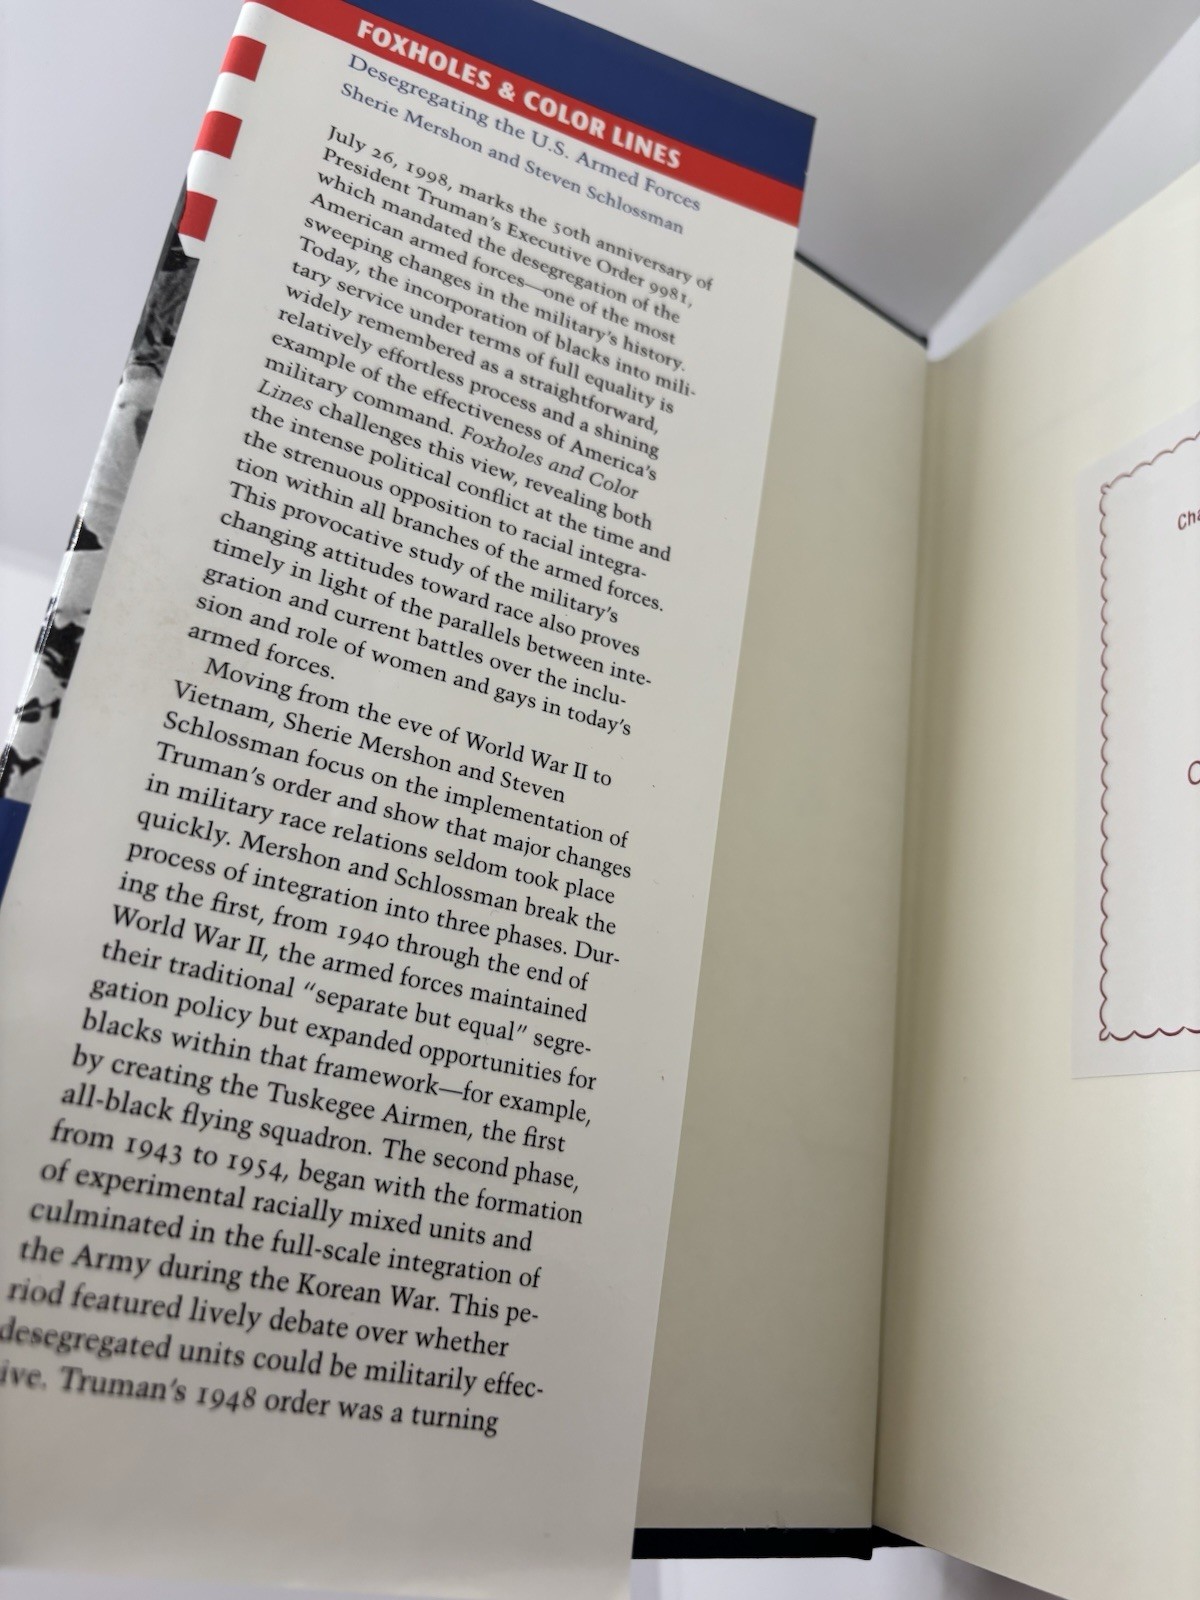 FOXHOLES & COLOR LINES
Desegregating the U.S. Armed Forces
Sherie Mershon and Steven Schlossman
July 26, 1998, marks the 50th anniversary of
President Truman's Executive Order 9981,
which mandated the desegregation of the
American armed forces—one of the most
sweeping changes in the military's history.
Today, the incorporation of blacks into mili-
tary service under terms of full equality is
widely remembered as a straightforward,
relatively effortless process and a shining
example of the effectiveness of America's
military command. Foxholes and Color
Lines challenges this view, revealing both
the intense political conflict at the time and
the strenuous opposition to racial integra-
tion within all branches of the armed forces.
This provocative study of the military's
changing attitudes toward race also proves
timely in light of the parallels between inte-
gration and current battles over the inclu-
sion and role of women and gays in today's
armed forces.
Moving from the eve of World War II to
Vietnam, Sherie Mershon and Steven
Schlossman focus on the implementation of
Truman's order and show that major changes
in military race relations seldom took place
quickly. Mershon and Schlossman break the
process of integration into three phases. Dur-
ing the first, from 1940 through the end of
World War II, the armed forces maintained
their traditional "separate but equal" segre-
gation policy but expanded opportunities for
blacks within that framework—for example,
by creating the Tuskegee Airmen, the first
all-black flying squadron. The second phase,
from 1943 to 1954, began with the formation
of experimental racially mixed units and
culminated in the full-scale integration of
the Army during the Korean War. This pe-
riod featured lively debate over whether
desegregated units could be militarily effec-
ive. Truman's 1948 order was a turning
Cha